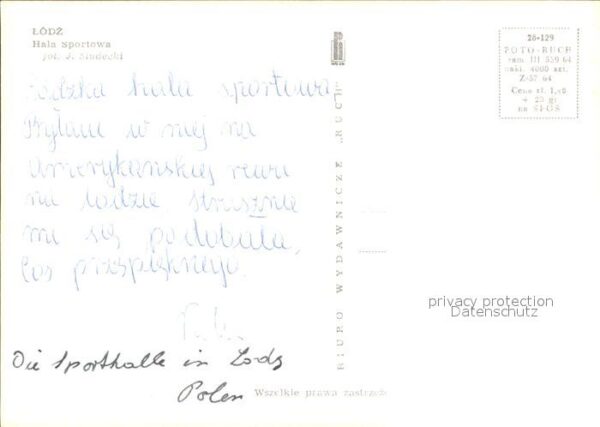 ŁÓDŹ
Hala Sportowa
fot. J. Siudecki
Łódzka hala sportowa.
Byłam w niej na
Amerykańskiej rewii
na lodzie, strasznie
mi się podobała,
Coś przepięknego.
Die Sporthalle in Lodz
Polen
BIURO WYDAWNICZE „RUCH”
Wszelkie prawa zastrzeż
28-129
FOTO-RUCH
zam. III 559 64
nakł. 4000 szt.
Z-57 64
Cena zł. 1,40
+ 20 gr
na SFOS
privacy protection
Datenschutz